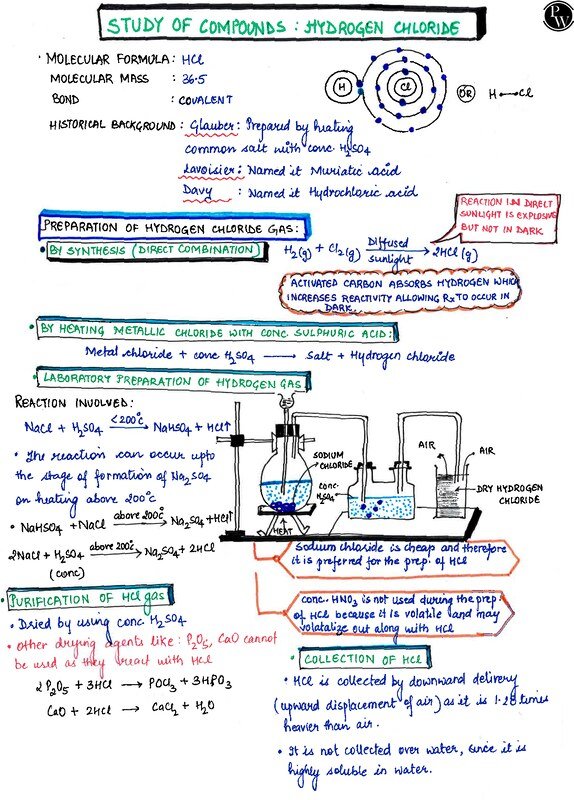 PW
STUDY OF COMPOUNDS : HYDROGEN CHLORIDE
• MOLECULAR FORMULA : HCl
MOLECULAR MASS : 36.5
BOND : COVALENT
H Cl OR H—Cl
HISTORICAL BACKGROUND : Glauber: Prepared by heating
common salt with conc. H2SO4
Lavoisier: Named it Muriatic acid
Davy : Named it Hydrochloric acid
REACTION IN DIRECT
SUNLIGHT IS EXPLOSIVE
BUT NOT IN DARK
PREPARATION OF HYDROGEN CHLORIDE GAS:
• BY SYNTHESIS (DIRECT COMBINATION)
H2(g) + Cl2(g) Diffused sunlight → 2HCl(g)
ACTIVATED CARBON ABSORBS HYDROGEN WHICH
INCREASES REACTIVITY ALLOWING Rx TO OCCUR IN
DARK.
• BY HEATING METALLIC CHLORIDE WITH CONC. SULPHURIC ACID:
Metal chloride + conc H2SO4 → Salt + Hydrogen chloride
• LABORATORY PREPARATION OF HYDROGEN GAS
REACTION INVOLVED:
NaCl + H2SO4 <200°c → NaHSO4 + HCl↑
• The reaction can occur upto
the stage of formation of Na2SO4
on heating above 200°c
• NaHSO4 + NaCl above 200°c → Na2SO4 + HCl↑
2NaCl + H2SO4 above 200°c → Na2SO4 + 2HCl
(conc)
SODIUM
CHLORIDE
conc.
H2SO4
HEAT
AIR
AIR
DRY HYDROGEN
CHLORIDE
Sodium chloride is cheap and therefore
it is preferred for the prep. of HCl
conc. HNO3 is not used during the prep
of HCl because it is volatile and may
volatalize out along with HCl
• PURIFICATION OF HCl gas
• Dried by using conc. H2SO4
• Other drying agents like : P2O5, CaO cannot
be used as they react with HCl
2P2O5 + 3HCl → POCl3 + 3HPO3
CaO + 2HCl → CaCl2 + H2O
• COLLECTION OF HCl
• HCl is collected by downward delivery
(upward displacement of air) as it is 1.28 times
heavier than air.
• It is not collected over water, since it is
highly soluble in water.